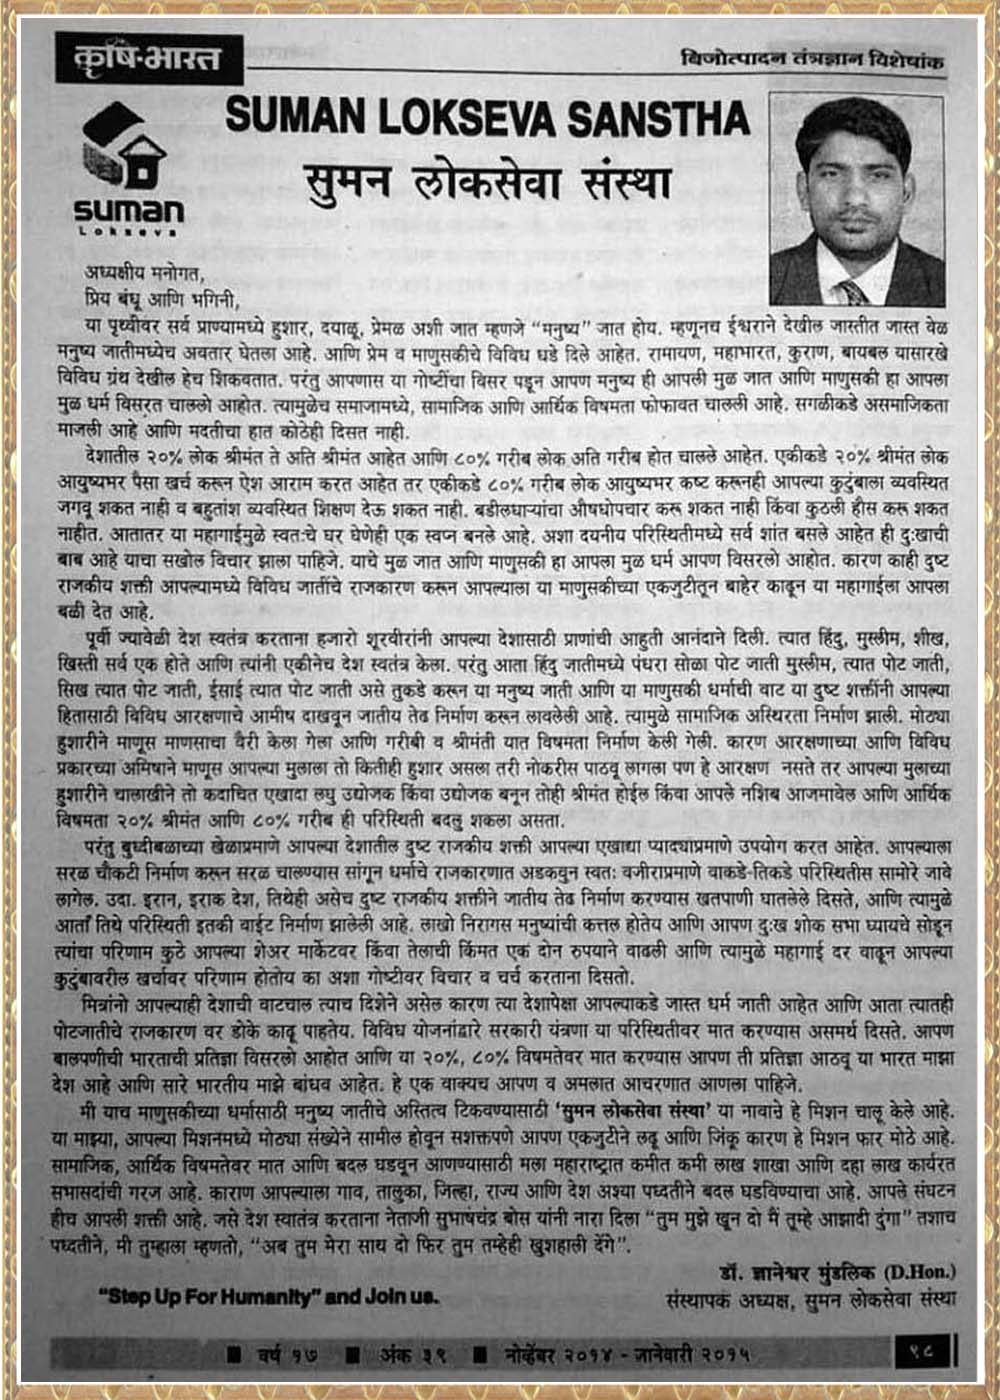 कृषि-भारत
बिजोत्पादन तंत्रज्ञान विशेषांक
SUMAN LOKSEVA SANSTHA
सुमन लोकसेवा संस्था
suman
Lokseva
अध्यक्षीय मनोगत,
प्रिय बंधू आणि भगिनी,
या पृथ्वीवर सर्व प्राण्यामध्ये हुशार, दयाळू, प्रेमळ अशी जात म्हणजे “मनुष्य” जात होय. म्हणूनच ईश्वराने देखील जास्तीत जास्त वेळ
मनुष्य जातीमध्येच अवतार घेतला आहे. आणि प्रेम व माणुसकीचे विविध धडे दिले आहेत. रामायण, महाभारत, कुराण, बायबल यासारखे
विविध ग्रंथ देखील हेच शिकवतात. परंतु आपणास या गोष्टींचा विसर पडून आपण मनुष्य ही आपली मुळ जात आणि माणुसकी हा आपला
मुळ धर्म विसरत चाललो आहोत. त्यामुळेच समाजामध्ये, सामाजिक आणि आर्थिक विषमता फोफावत चालली आहे. सगळीकडे असमाजिकता
माजली आहे आणि मदतीचा हात कोठेही दिसत नाही.
देशातील २०% लोक श्रीमंत ते अति श्रीमंत आहेत आणि ८०% गरीब लोक अति गरीब होत चालले आहेत. एकीकडे २०% श्रीमंत लोक
आयुष्यभर पैसा खर्च करून ऐश आराम करत आहेत तर एकीकडे ८०% गरीब लोक आयुष्यभर कष्ट करूनही आपल्या कुटुंबाला व्यवस्थित
जगवू शकत नाही व बहुतांश व्यवस्थित शिक्षण देऊ शकत नाही. बडीलधाऱ्यांचा औषधोपचार करू शकत नाही किंवा कुठली हौस करू शकत
नाहीत. आतातर या महागाईमुळे स्वतःचे घर घेणेही एक स्वप्न बनले आहे. अशा दयनीय परिस्थितीमध्ये सर्व शांत बसले आहेत ही दुःखाची
बाब आहे याचा सखोल विचार झाला पाहिजे. याचे मुळ जात आणि माणुसकी हा आपला मुळ धर्म आपण विसरलो आहोत. कारण काही दुष्ट
राजकीय शक्ती आपल्यामध्ये विविध जातींचे राजकारण करून आपल्याला या माणुसकीच्या एकजुटीतून बाहेर काढून या महागाईला आपला
बळी देत आहे.
पूर्वी ज्यावेळी देश स्वतंत्र करताना हजारो शूरवीरांनी आपल्या देशासाठी प्राणांची आहुती आनंदाने दिली. त्यात हिंदु, मुस्लीम, शीख,
खिस्ती सर्व एक होते आणि त्यांनी एकीनेच देश स्वतंत्र केला. परंतु आता हिंदु जातीमध्ये पंधरा सोळा पोट जाती मुस्लीम, त्यात पोट जाती,
सिख त्यात पोट जाती, ईसाई त्यात पोट जाती असे तुकडे करून या मनुष्य जाती आणि या माणुसकी धर्माची वाट या दुष्ट शक्तींनी आपल्या
हितासाठी विविध आरक्षणाचे आमीष दाखवून जातीय तेढ निर्माण करून लावलेली आहे. त्यामुळे सामाजिक अस्थिरता निर्माण झाली. मोठ्या
हुशारीने माणूस माणसाचा वैरी केला गेला आणि गरीबी व श्रीमंती यात विषमता निर्माण केली गेली. कारण आरक्षणाच्या आणि विविध
प्रकारच्या अमिषाने माणूस आपल्या मुलाला तो कितीही हुशार असला तरी नोकरीस पाठवू लागला पण हे आरक्षण नसते तर आपल्या मुलाच्या
हुशारीने चालाखीने तो कदाचित एखादा लघु उद्योजक किंवा उद्योजक बनून तोही श्रीमंत होईल किंवा आपले नशिब आजमावेल आणि आर्थिक
विषमता २०% श्रीमंत आणि ८०% गरीब ही परिस्थिती बदलु शकला असता.
परंतु बुध्दीबळाच्या खेळाप्रमाणे आपल्या देशातील दुष्ट राजकीय शक्ती आपल्या एखाद्या प्याद्याप्रमाणे उपयोग करत आहेत. आपल्याला
सरळ चौकटी निर्माण करून सरळ चालण्यास सांगून धर्माचे राजकारणात अडकवुन स्वतः वजीराप्रमाणे वाकडे-तिकडे परिस्थितीस सामोरे जावे
लागेल. उदा. इरान, इराक देश, तिथेही असेच दुष्ट राजकीय शक्तीने जातीय तेढ निर्माण करण्यास खतपाणी घातलेले दिसते, आणि त्यामुळे
आताँ तिथे परिस्थिती इतकी वाईट निर्माण झालेली आहे. लाखो निरागस मनुष्यांची कत्तल होतेय आणि आपण दुःख शोक सभा घ्यायचे सोडून
त्यांचा परिणाम कुठे आपल्या शेअर मार्केटवर किंवा तेलाची किंमत एक दोन रुपयाने वाढली आणि त्यामुळे महागाई दर वाढून आपल्या
कुटुंबावरील खर्चावर परिणाम होतोय का अशा गोष्टीवर विचार व चर्च करताना दिसतो.
मित्रांनो आपल्याही देशाची वाटचाल त्याच दिशेने असेल कारण त्या देशापेक्षा आपल्याकडे जास्त धर्म जाती आहेत आणि आता त्यातही
पोटजातीचे राजकारण वर डोके काढू पाहतेय. विविध योजनांद्वारे सरकारी यंत्रणा या परिस्थितीवर मात करण्यास असमर्थ दिसते. आपण
बालपणीची भारताची प्रतिज्ञा विसरलो आहोत आणि या २०%, ८०% विषमतेवर मात करण्यास आपण ती प्रतिज्ञा आठवू या भारत माझा
देश आहे आणि सारे भारतीय माझे बांधव आहेत. हे एक वाक्यच आपण व अमलात आचरणात आणला पाहिजे.
मी याच माणुसकीच्या धर्मासाठी मनुष्य जातीचे अस्तित्व टिकवण्यासाठी ‘सुमन लोकसेवा संस्था’ या नावाने हे मिशन चालू केले आहे.
या माझ्या, आपल्या मिशनमध्ये मोठ्या संख्येने सामील होवून सशक्तपणे आपण एकजुटीने लढू आणि जिंकू कारण हे मिशन फार मोठे आहे.
सामाजिक, आर्थिक विषमतेवर मात आणि बदल घडवून आणण्यासाठी मला महाराष्ट्रात कमीत कमी लाख शाखा आणि दहा लाख कार्यरत
सभासदांची गरज आहे. काराण आपल्याला गाव, तालुका, जिल्हा, राज्य आणि देश अश्या पध्दतीने बदल घडविण्याचा आहे. आपले संघटन
हीच आपली शक्ती आहे. जसे देश स्वातंत्र करताना नेताजी सुभाषचंद्र बोस यांनी नारा दिला “तुम मुझे खून दो मैं तूम्हे आझादी दुंगा” तशाच
पध्दतीने, मी तुम्हाला म्हणतो, “अब तुम मेरा साथ दो फिर तुम तम्हेही खुशहाली देंगे”.
डॉ. ज्ञानेश्वर मुंडलिक (D.Hon.)
“Step Up For Humanity” and Join us.
संस्थापक अध्यक्ष, सुमन लोकसेवा संस्था
■ वर्ष १७ ■ अंक ३९ ■ नोव्हेंबर २०१४ - जानेवारी २०१५
९८